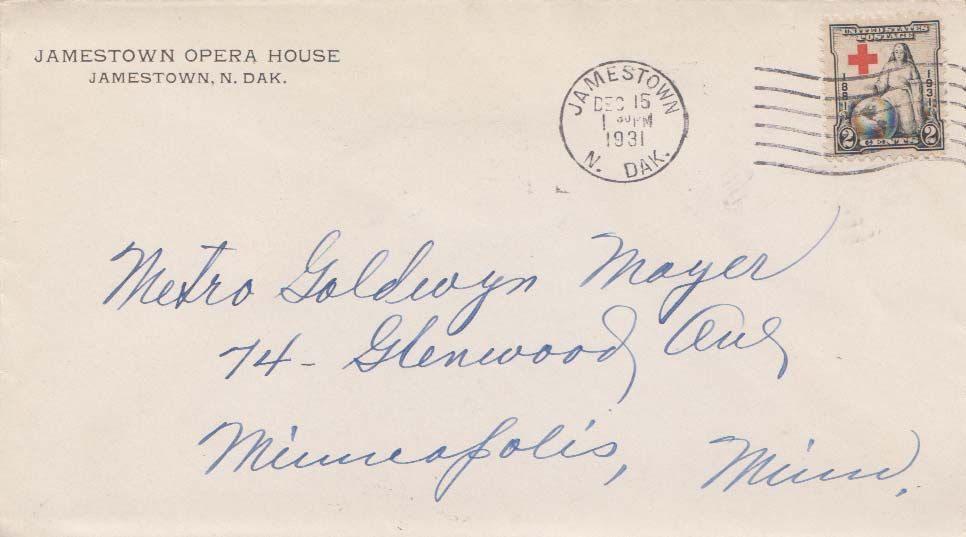 JAMESTOWN OPERA HOUSE
JAMESTOWN, N. DAK.
JAMESTOWN
DEC 15
1 30 PM
1931
N. DAK.
UNITED STATES
POSTAGE
1881 1931
2 CENTS 2
Metro Goldwyn Mayer
74 - Glenwood Ave
Minneapolis, Minn.